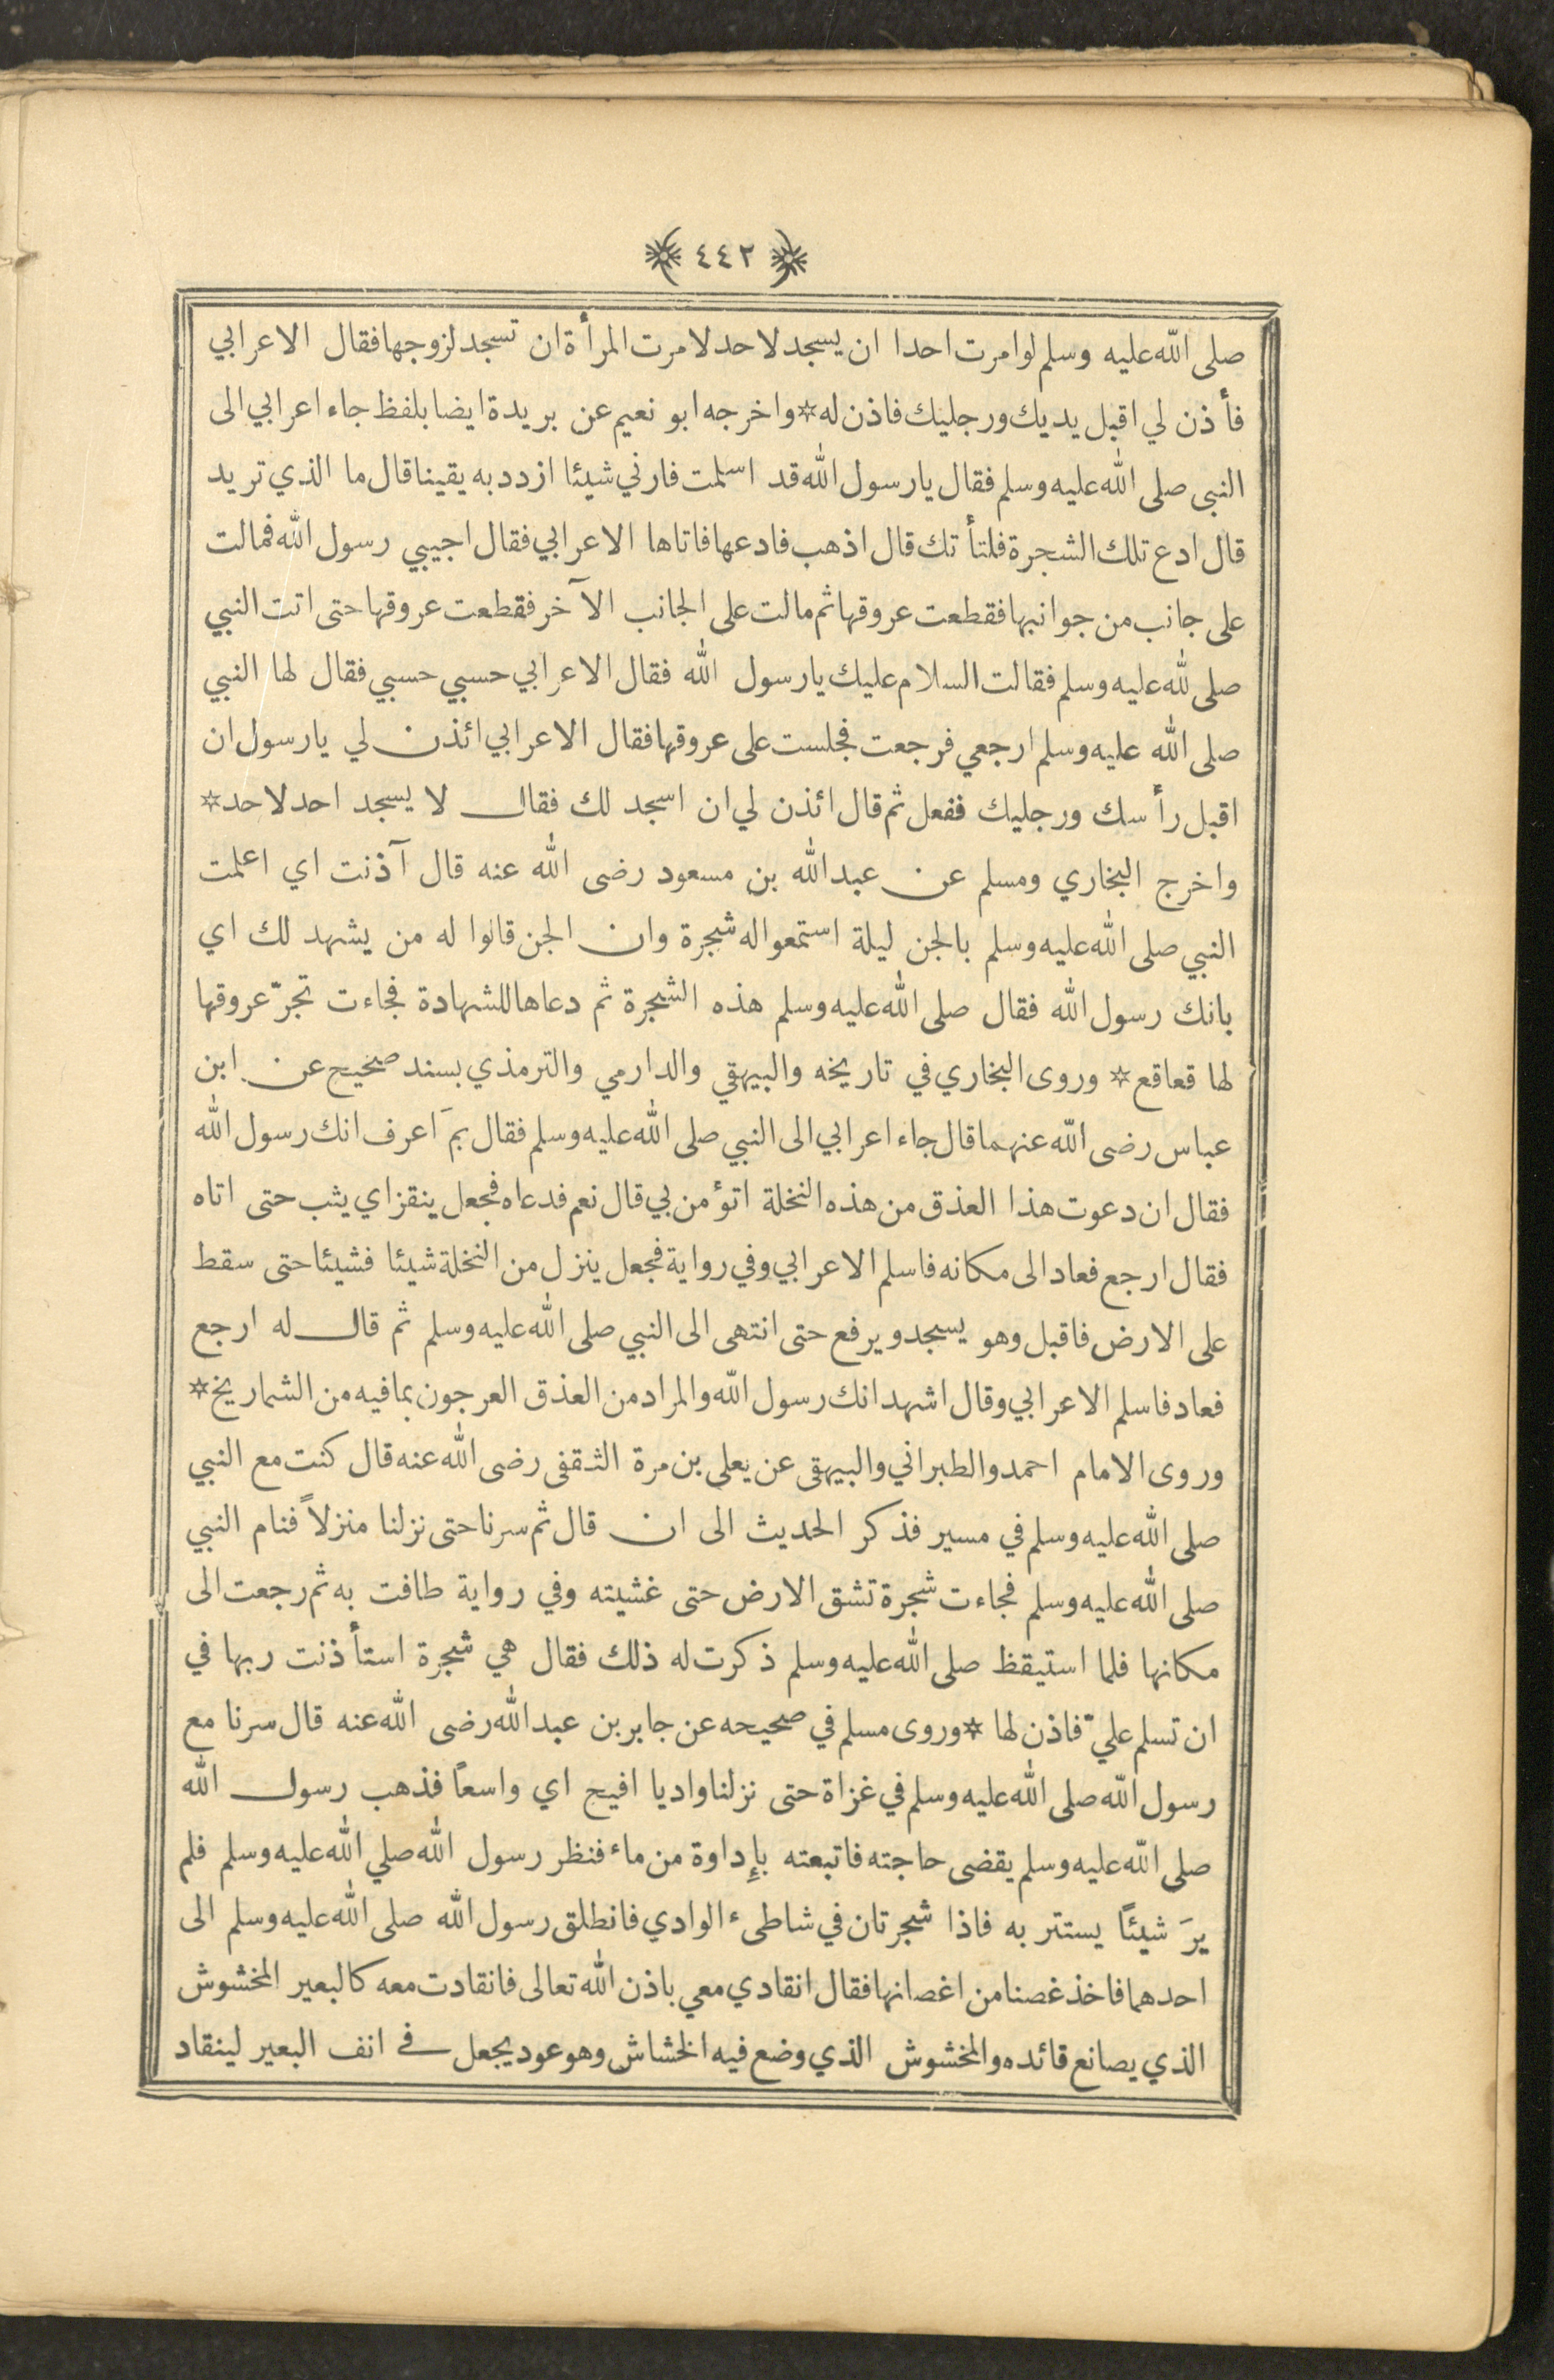 ﴿ ٤٤٢ ﴾
صلى الله عليه وسلم لو امرت احدا ان يسجد لاحد لامرت المرأة ان تسجد لزوجها فقال الاعرابي
فأذن لي اقبل يديك ورجليك فاذن له * واخرجه ابو نعيم عن بريدة ايضا بلفظ جاء اعرابي الى
النبى صلى الله عليه وسلم فقال يا رسول الله قد اسلمت فارني شيئا ازدد به يقينا قال ما الذي تريد
قال ادع تلك الشجرة فلتأتك قال اذهب فادعها فاتاها الاعرابي فقال اجيبي رسول الله فمالت
على جانب من جوانبها فقطعت عروقها ثم مالت على الجانب الآخر فقطعت عروقها حتى اتت النبي
صلى لله عليه وسلم فقالت السلام عليك يا رسول الله فقال الاعرابي حسبي حسبي فقال لها النبي
صلى الله عليه وسلم ارجعي فرجعت فجلست على عروقها فقال الاعرابي ائذن لي يا رسول ان
اقبل رأسك ورجليك ففعل ثم قال ائذن لي ان اسجد لك فقال لا يسجد احد لاحد *
واخرج البخاري ومسلم عن عبد الله بن مسعود رضى الله عنه قال آذنت اي اعلمت
النبي صلى الله عليه وسلم بالجن ليلة استمعوا له شجرة وان الجن قالوا له من يشهد لك اي
بانك رسول الله فقال صلى الله عليه وسلم هذه الشجرة ثم دعاها للشهادة فجاءت تجرّ عروقها
لها قعاقع * وروى البخاري في تاريخه والبيهقي والدارمي والترمذي بسند صحيح عن ابن
عباس رضى الله عنهما قال جاء اعرابي الى النبي صلى الله عليه وسلم فقال بمَ اعرف انك رسول الله
فقال ان دعوت هذا العذق من هذه النخلة اتؤمن بي قال نعم فدعاه فجعل ينقز اي يثب حتى اتاه
فقال ارجع فعاد الى مكانه فاسلم الاعرابي وفي رواية فجعل ينزل من النخلة شيئا فشيئا حتى سقط
على الارض فاقبل وهو يسجد ويرفع حتى انتهى الى النبي صلى الله عليه وسلم ثم قال له ارجع
فعاد فاسلم الاعرابي وقال اشهد انك رسول الله والمراد من العذق العرجون بما فيه من الشماريخ *
وروى الامام احمد والطبراني والبيهقى عن يعلى بن مرة الثقفى رضى الله عنه قال كنت مع النبي
صلى الله عليه وسلم في مسير فذكر الحديث الى ان قال ثم سرنا حتى نزلنا منزلاً فنام النبي
صلى الله عليه وسلم فجاءت شجرة تشق الارض حتى غشيته وفي رواية طافت به ثم رجعت الى
مكانها فلما استيقظ صلى الله عليه وسلم ذكرت له ذلك فقال هي شجرة استأذنت ربها في
ان تسلم عليّ فاذن لها * وروى مسلم في صحيحه عن جابر بن عبد الله رضى الله عنه قال سرنا مع
رسول الله صلى الله عليه وسلم في غزاة حتى نزلنا واديا افيح اي واسعاً فذهب رسول الله
صلى الله عليه وسلم يقضى حاجته فاتبعته بإداوة من ماء فنظر رسول الله صلي الله عليه وسلم فلم
يرَ شيئًا يستتر به فاذا شجرتان في شاطىء الوادي فانطلق رسول الله صلى الله عليه وسلم الى
احدهما فاخذ غصنا من اغصانها فقال انقادي معي باذن الله تعالى فانقادت معه كالبعير المخشوش
الذي يصانع قائده والمخشوش الذي وضع فيه الخشاش وهو عود يجعل في انف البعير لينقاد